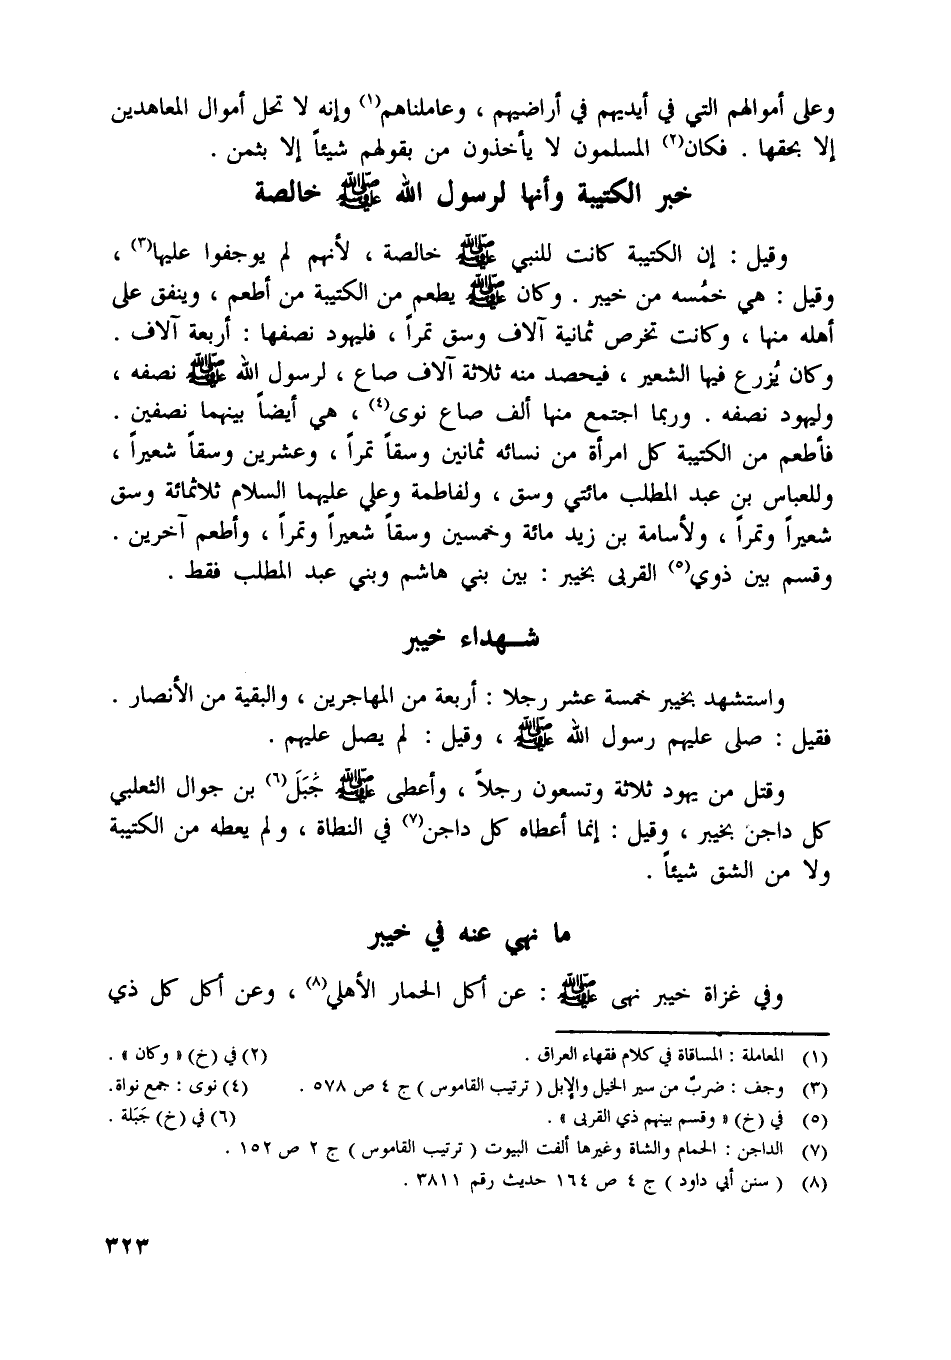 وعلى أموالهم التي في أيديهم في أراضيهم ، وعاملناهم(١) وإنه لا تحل أموال المعاهدين
إلا بحقها . فكان(٢) المسلمون لا يأخذون من بقولهم شيئاً إلا بثمن .
خبر الكتيبة وأنها لرسول الله ﷺ خالصة
وقيل : إن الكتيبة كانت للنبي ﷺ خالصة ، لأنهم لم يوجفوا عليها(٣) ،
وقيل : هي خمُسه من خيبر . وكان ﷺ يطعم من الكتيبة من أطعم ، وينفق على
أهله منها ، وكانت تخرص ثمانية آلاف وسق تمراً ، فليهود نصفها : أربعة آلاف .
وكان يُزرع فيها الشعير ، فيحصد منه ثلاثة آلاف صاع ، لرسول الله ﷺ نصفه ،
وليهود نصفه . وربما اجتمع منها ألف صاع نوى(٤) ، هي أيضاً بينهما نصفين .
فأطعم من الكتيبة كل امرأة من نسائه ثمانين وسقاً تمراً ، وعشرين وسقاً شعيراً ،
وللعباس بن عبد المطلب مائتي وسق ، ولفاطمة وعلي عليهما السلام ثلاثمائة وسق
شعيراً وتمراً ، ولأسامة بن زيد مائة وخمسين وسقاً شعيراً وتمراً ، وأطعم آخرين .
وقسم بين ذوي(٥) القربى بخيبر : بين بني هاشم وبني عبد المطلب فقط .
شـهداء خيبر
واستشهد بخيبر خمسة عشر رجلا : أربعة من المهاجرين ، والبقية من الأنصار .
فقيل : صلى عليهم رسول الله ﷺ ، وقيل : لم يصل عليهم .
وقتل من يهود ثلاثة وتسعون رجلاً ، وأعطى ﷺ جَبَلَ(٦) بن جوال الثعلبي
كل داجن بخيبر ، وقيل : إنما أعطاه كل داجن(٧) في النطاة ، ولم يعطه من الكتيبة
ولا من الشق شيئاً .
ما نهي عنه في خيبر
وفي غزاة خيبر نهى ﷺ : عن أكل الحمار الأهلي(٨) ، وعن أكل كل ذي
(١) المعاملة : المساقاة في كلام فقهاء العراق . (٢) في (خ) « وكان » .
(٣) وجف : ضربٌ من سير الخيل والإبل ( ترتيب القاموس ) ج ٤ ص ٥٧٨ . (٤) نوى : جمع نواة.
(٥) في (خ) « وقسم بينهم ذي القربى » . (٦) في (خ) جَبَلة .
(٧) الداجن : الحمام والشاة وغيرها ألفت البيوت ( ترتيب القاموس ) ج ٢ ص ١٥٢ .
(٨) ( سنن أبي داود ) ج ٤ ص ١٦٤ حديث رقم ٣٨١١ .
٣٢٣